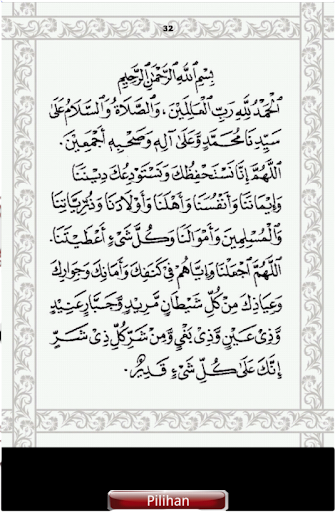 32
بِسْمِ اللَّهِ الرَّحْمَٰنِ الرَّحِيمِ
اَلْحَمْدُ لِلَّهِ رَبِّ الْعَالَمِيْنَ، وَالصَّلَاةُ وَالسَّلَامُ عَلَى
سَيِّدِنَا مُحَمَّدٍ وَّعَلَى آلِهِ وَصَحْبِهِ أَجْمَعِيْنَ.
اَللَّهُمَّ إِنَّا نَسْتَحْفِظُكَ وَنَسْتَوْدِعُكَ دِيْنَنَا
وَإِيْمَانَنَا وَأَنْفُسَنَا وَأَهْلَنَا وَأَوْلَادَنَا وَذُرِّيَّاتِنَا
وَالْمُسْلِمِيْنَ وَأَمْوَالَنَا وَكُلَّ شَيْءٍ أَعْطَيْتَنَا.
اَللَّهُمَّ اجْعَلْنَا وَإِيَّاهُمْ فِيْ كَنَفِكَ وَأَمَانِكَ وَجِوَارِكَ
وَعِيَاذِكَ مِنْ كُلِّ شَيْطَانٍ مَّرِيْدٍ وَّجَبَّارٍ عَنِيْدٍ
وَّذِيْ عَيْنٍ وَّذِيْ بَغْيٍ وَّمِنْ شَرِّ كُلِّ ذِيْ شَرٍّ
إِنَّكَ عَلَى كُلِّ شَيْءٍ قَدِيْرٌ.
Pilihan